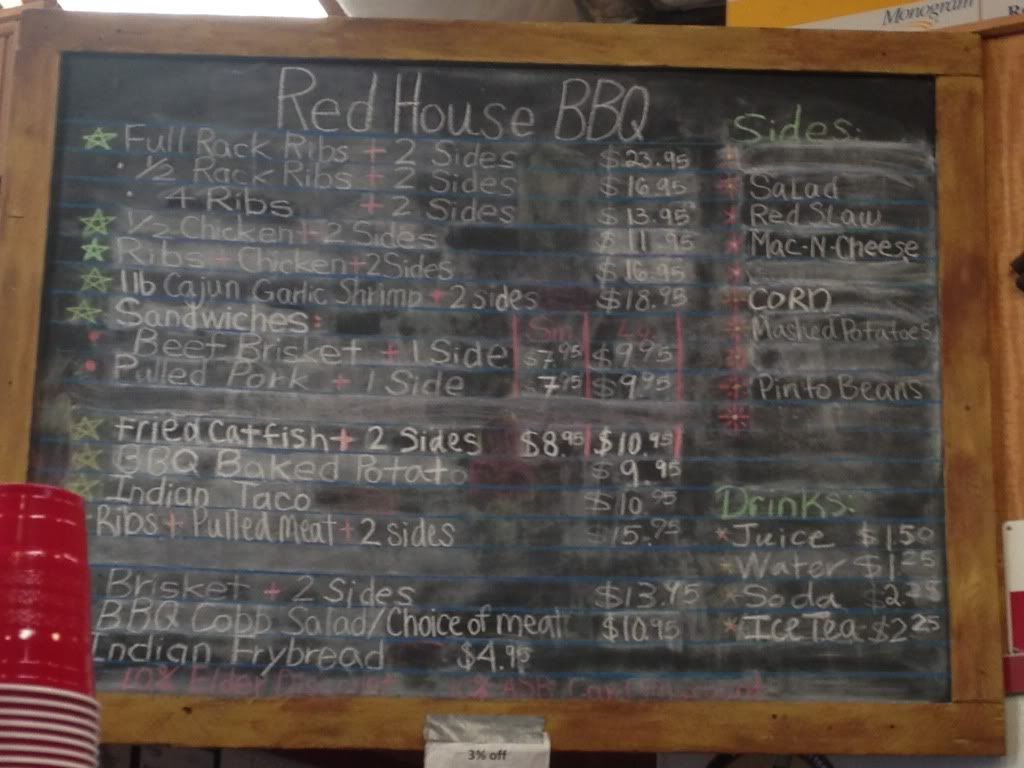 Monogram
Red House BBQ
Full Rack Ribs + 2 Sides $23.95
1/2 Rack Ribs + 2 Sides $16.95
4 Ribs + 2 Sides $13.95
1/2 Chicken + 2 Sides $11.95
Ribs + Chicken + 2 Sides $16.95
1lb Cajun Garlic Shrimp + 2 sides $18.95
Sandwiches: Sm. Lg.
Beef Brisket + 1 Side $7.95 $9.95
Pulled Pork + 1 Side $7.95 $9.95
Fried Catfish + 2 Sides $8.95 $10.95
BBQ Baked Potato $9.95
Indian Taco $10.95
Ribs + Pulled Meat + 2 sides $15.95
Brisket + 2 Sides $13.95
BBQ Cobb Salad/Choice of meat $10.95
Indian Frybread $4.95
10% Elder Discount
Sides:
Salad
Red Slaw
Mac-N-Cheese
CORN
Mashed Potatoes
Pinto Beans
Drinks:
Juice $1.50
Water $1.25
Soda $2.25
Ice Tea $2.25
3% off